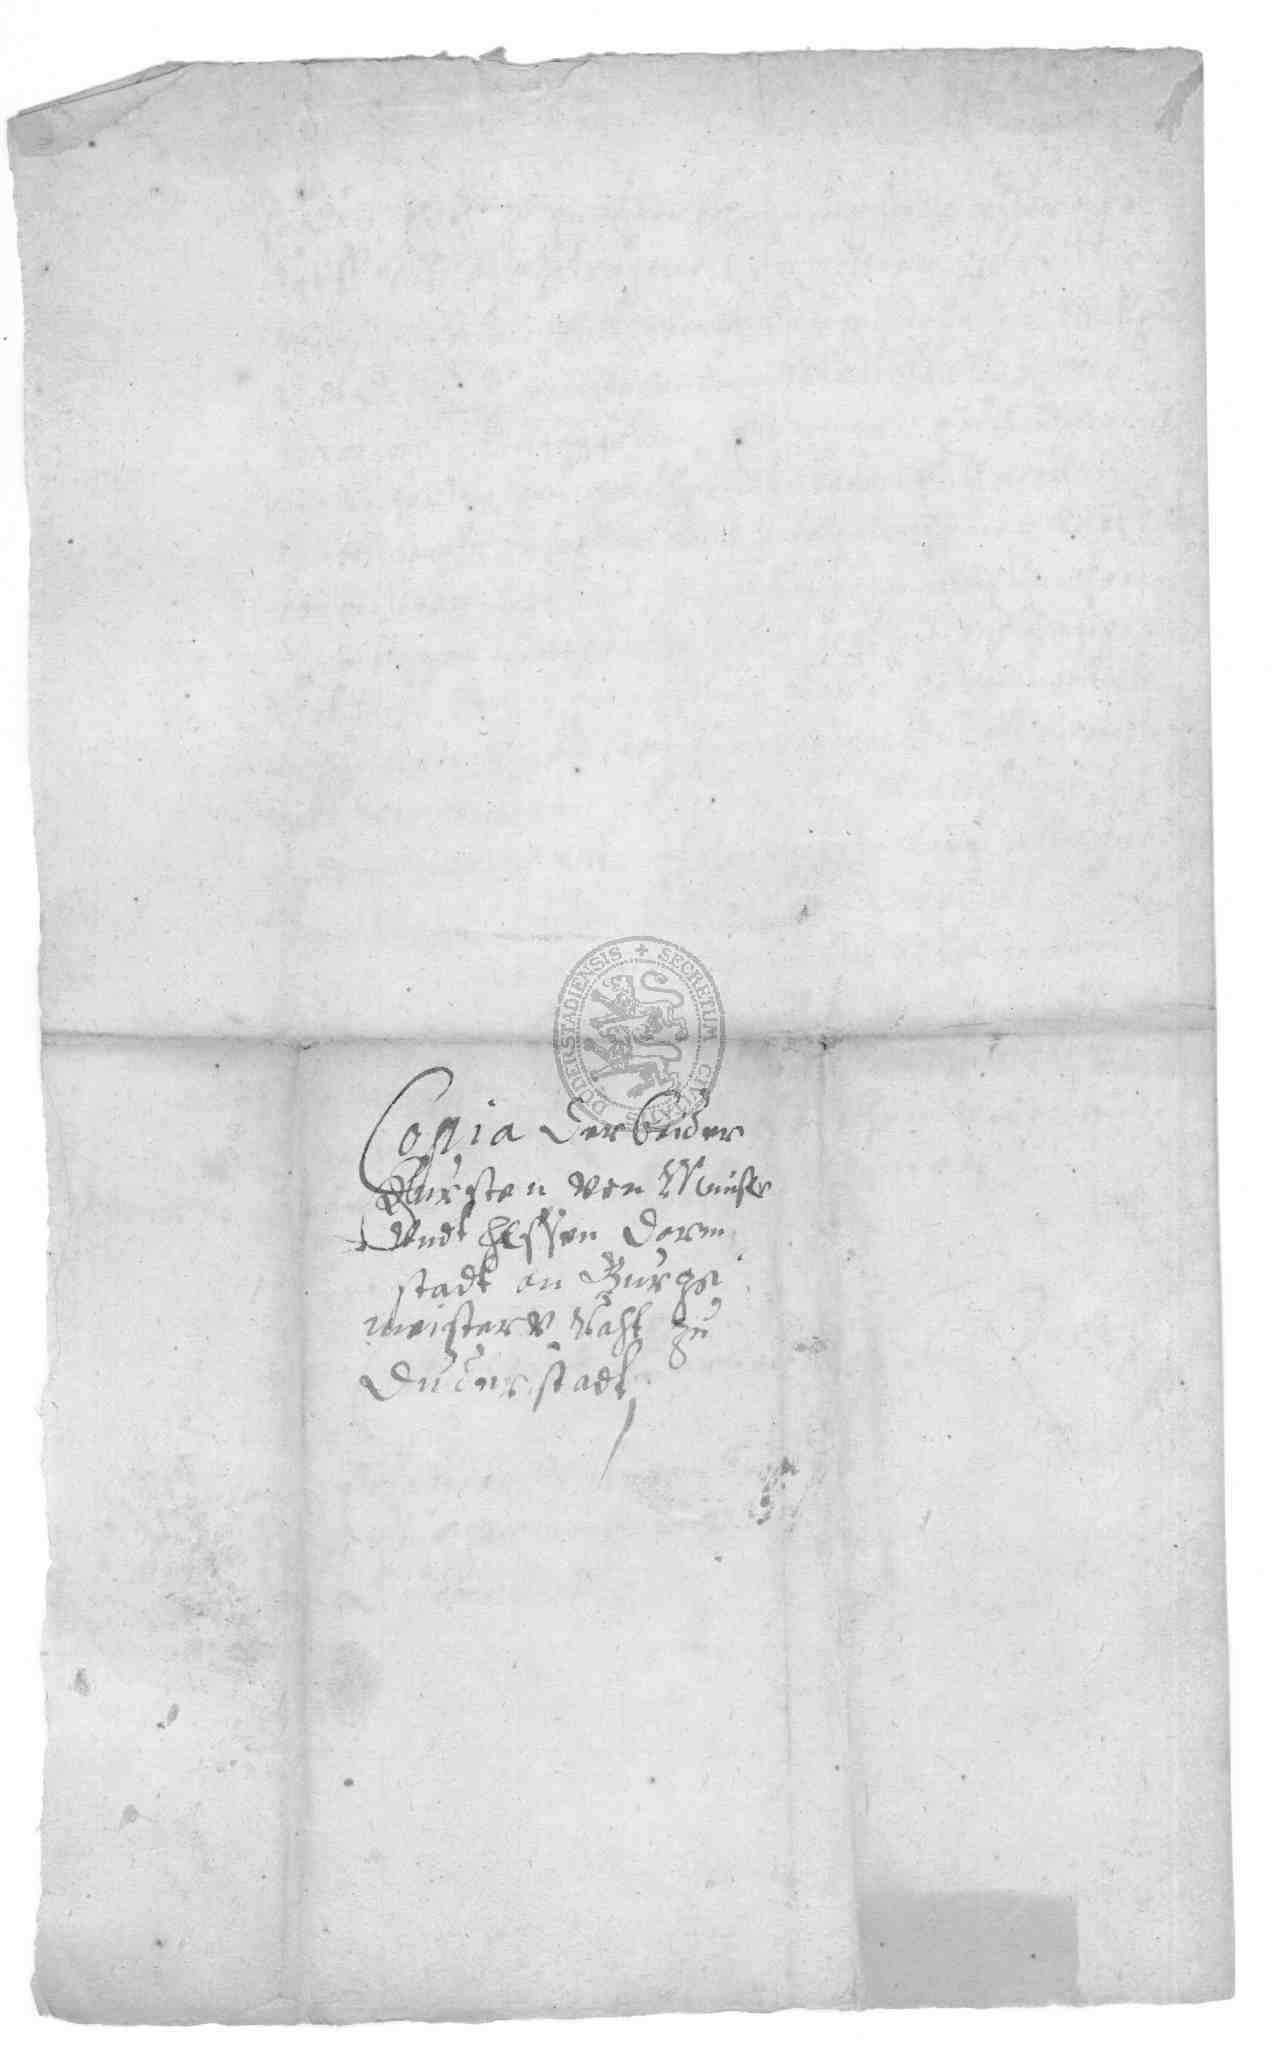 SECRETUM CIVITATIS DUDERSTADIENSIS
Copia der beider
Fursten von Munster
Vndt Hessen Darm
stadt an Burge
meister v. Raht zu
Duderstadt